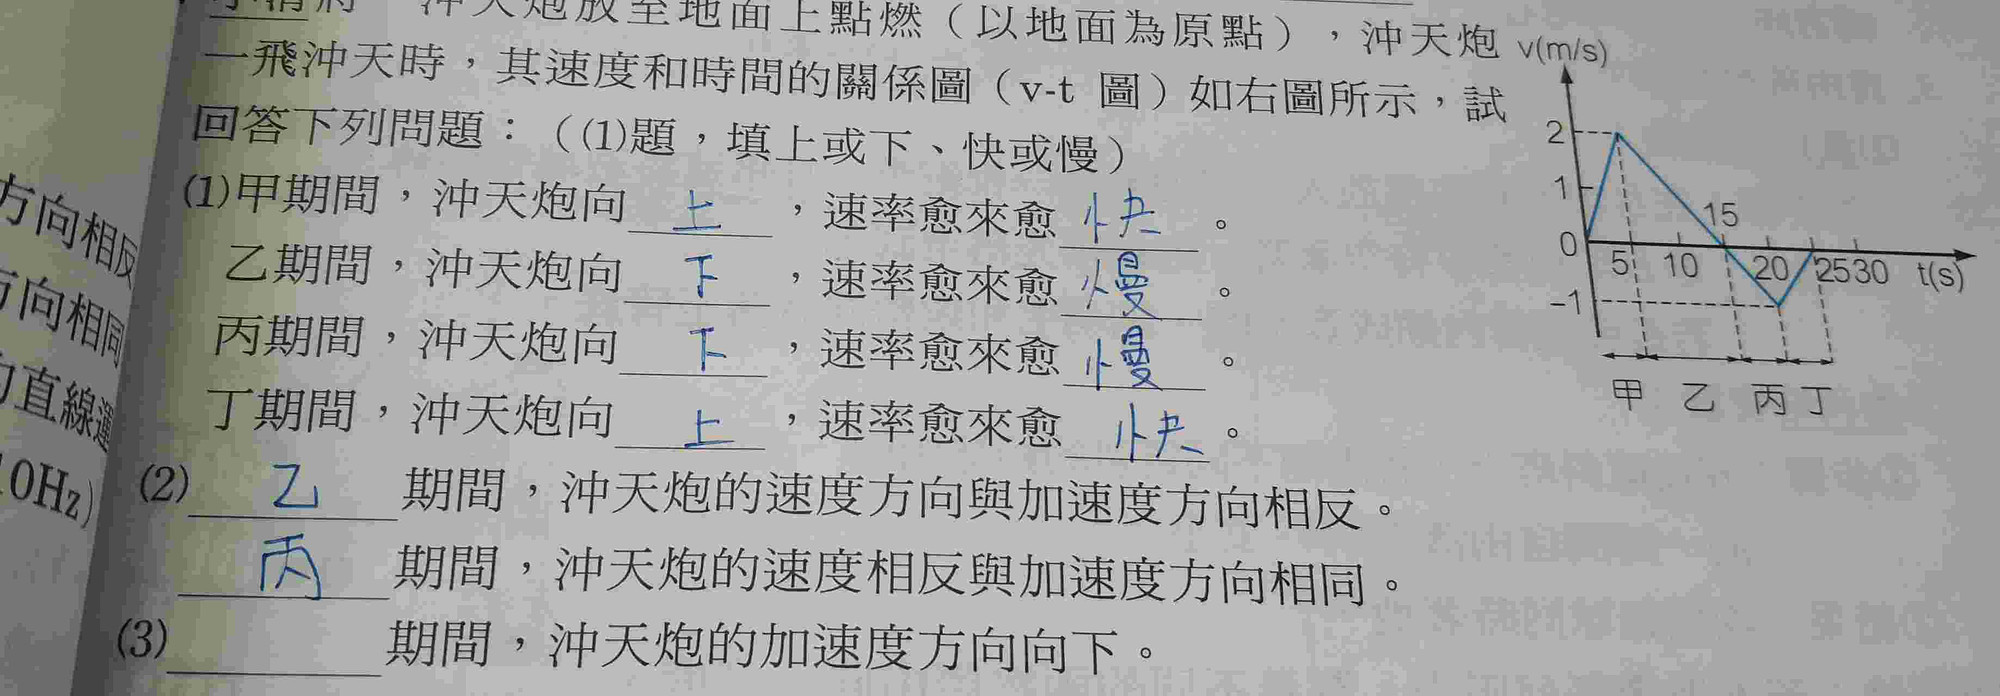 沖天炮放至地面上點燃（以地面為原點），沖天炮
一飛沖天時，其速度和時間的關係圖（v-t 圖）如右圖所示，試
回答下列問題：（(1)題，填上或下、快或慢）
(1)甲期間，沖天炮向 上 ，速率愈來愈 快 。
乙期間，沖天炮向 下 ，速率愈來愈 慢 。
丙期間，沖天炮向 下 ，速率愈來愈 慢 。
丁期間，沖天炮向 上 ，速率愈來愈 快 。
(2) 乙 期間，沖天炮的速度方向與加速度方向相反。
丙 期間，沖天炮的速度相反與加速度方向相同。
(3) 期間，沖天炮的加速度方向向下。
v(m/s)
2
1
15
0
5 10 20 25 30 t(s)
-1
甲 乙 丙 丁
方向相反
方向相同
的直線運
10Hz)